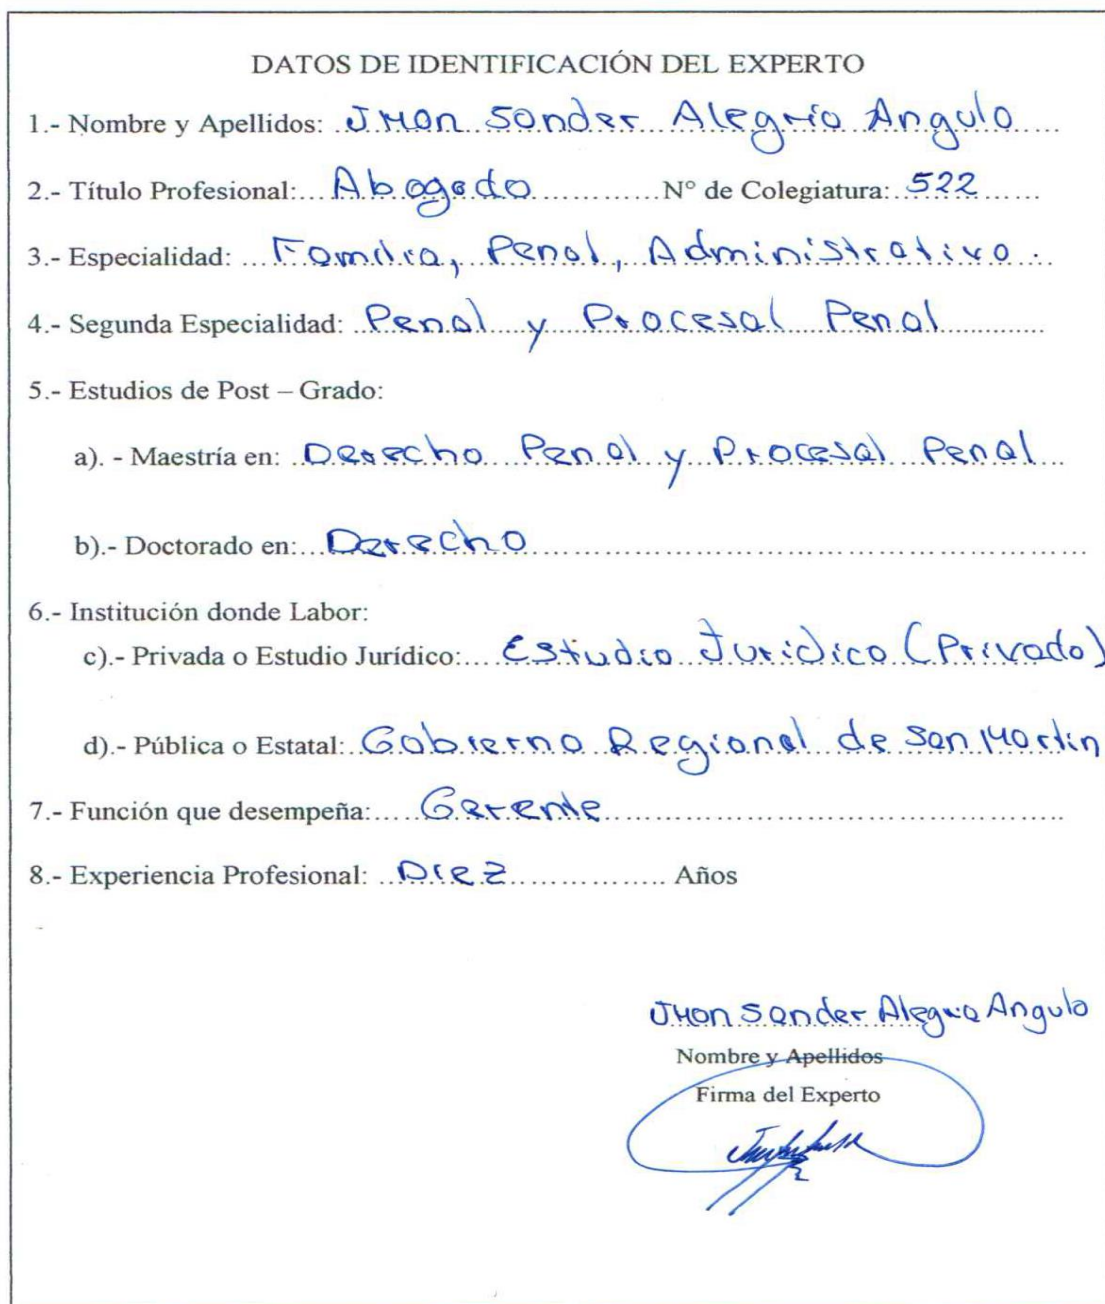 DATOS DE IDENTIFICACIÓN DEL EXPERTO
1.- Nombre y Apellidos: Jhon Sander Alegría Angulo
2.- Título Profesional: Abogado N° de Colegiatura: 522
3.- Especialidad: Familia, Penal, Administrativo.
4.- Segunda Especialidad: Penal y Procesal Penal
5.- Estudios de Post – Grado:
a). - Maestría en: Derecho Penal y Procesal Penal
b).- Doctorado en: Derecho
6.- Institución donde Labor:
c).- Privada o Estudio Jurídico: Estudio Juridico (Privado)
d).- Pública o Estatal: Gobierno Regional de San Martin
7.- Función que desempeña: Gerente
8.- Experiencia Profesional: Diez Años
Jhon Sander Alegria Angulo
Nombre y Apellidos
Firma del Experto